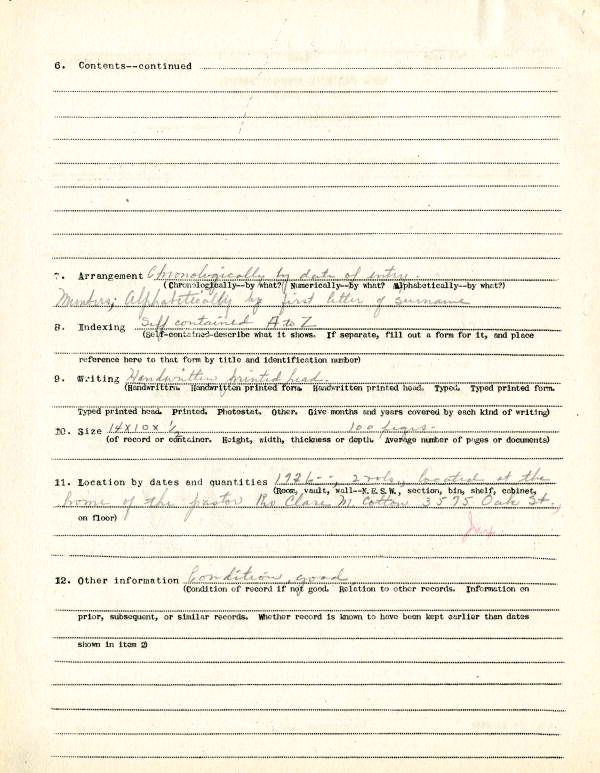 6. Contents--continued
7. Arrangement Chronologically by date of entry.
(Chronologically--by what? Numerically--by what? Alphabetically--by what?)
Members; Alphabetically by first letter of surname
8. Indexing Self contained A to Z
(Self-contained-describe what it shows. If separate, fill out a form for it, and place
reference here to that form by title and identification number)
9. Writing Handwritten printed head.
(Handwrittrn. Handwritten printed form. Handwritten printed head. Typed. Typed printed form.
Typed printed head. Printed. Photostat. Other. Give months and years covered by each kind of writing)
10. Size 14X10X 1/2 100 pages-
(of record or container. Height, width, thickness or depth. Average number of pages or documents)
11. Location by dates and quantities 1926--, 2 vols., located at the
(Room, vault, wall--N.E.S.W., section, bin, shelf, cabinet,
home of the pastor Rev Clare M. Cotton 3575 Oak St.,
on floor) Jax.
12. Other information Condition, good
(Condition of record if not good. Relation to other records. Information on
prior, subsequent, or similar records. Whether record is known to have been kept earlier than dates
shown in item 2)